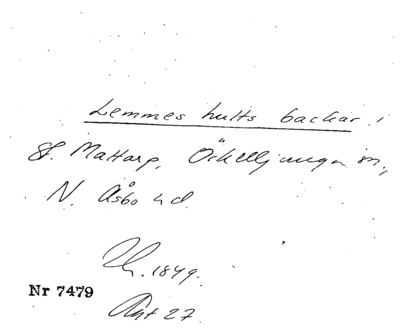 Lemmeshults backar i
St. Mattarp, Örkelljunga sn,
N. Åsbo hd.
Th. 1849.
Nr 7479
Akt 27